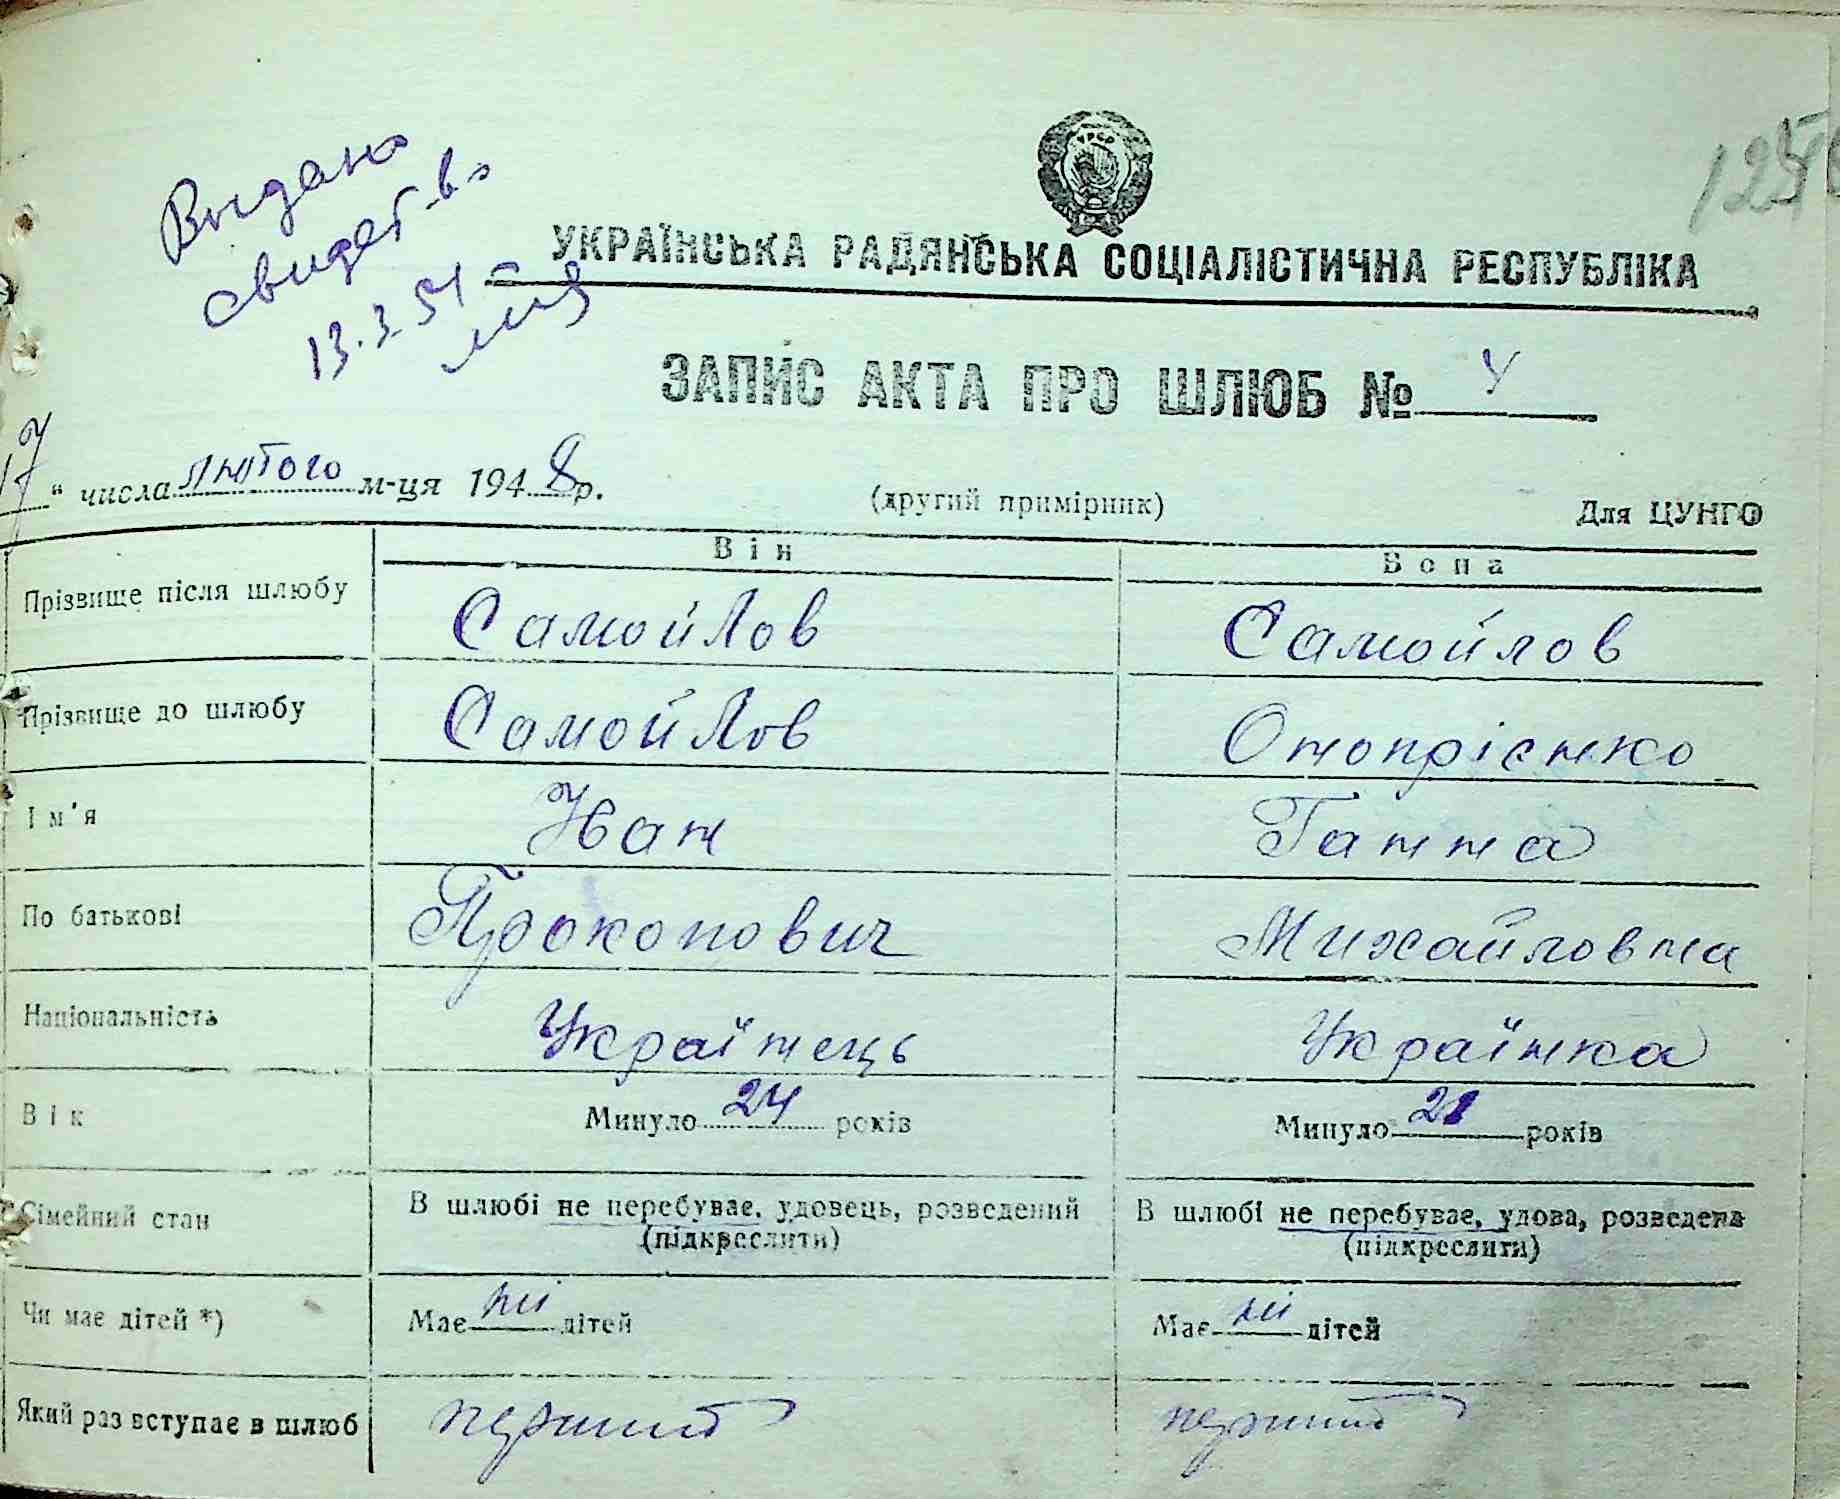 Выдано
свидет-во
13.3.54
125
УРСР
УКРАЇНСЬКА РАДЯНСЬКА СОЦІАЛІСТИЧНА РЕСПУБЛІКА
ЗАПИС АКТА ПРО ШЛЮБ № 4
17 " числа лютого м-ця 1948 р. (другий примірник) Для ЦУНГО
Він Вона
Прізвище після шлюбу Самойлов Самойлов
Прізвище до шлюбу Самойлов Онопрієнко
Ім'я Иван Ганна
По батькові Прокопович Михайловна
Національність Українець Українка
Вік Минуло 24 років Минуло 21 років
Сімейний стан В шлюбі не перебуває, удовець, розведений В шлюбі не перебуває, удова, розведена
(підкреслити) (підкреслити)
Чи має дітей *) Має ні дітей Має ні дітей
Який раз вступає в шлюб перший перший